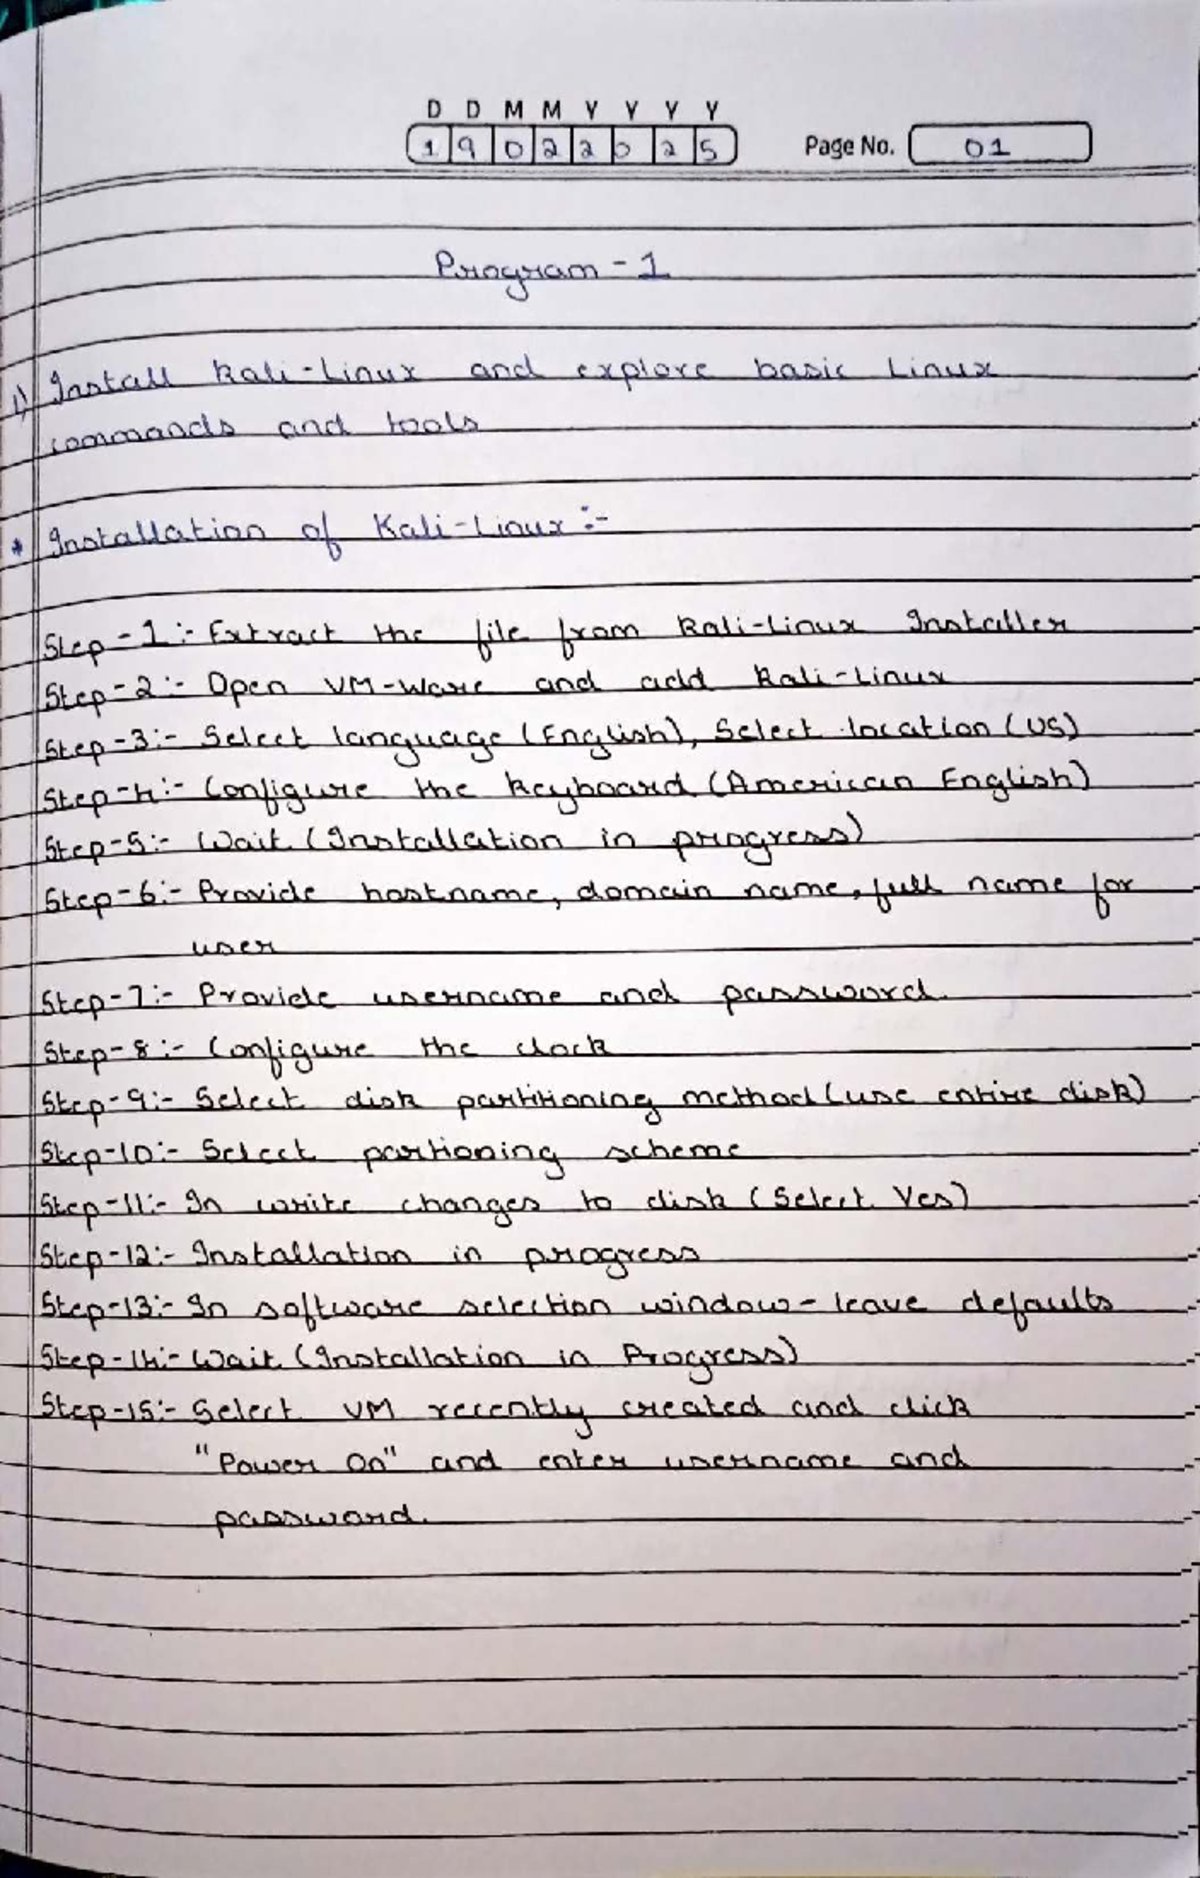 D D M M Y Y Y Y
1 9 0 2 2 0 2 5 Page No. 01
Program - 1
1) Install Kali-Linux and explore basic Linux
commands and tools
* Installation of Kali-Linux :-
Step-1:- Extract the file from Kali-Linux Installer
Step-2:- Open VM-Ware and add Kali-Linux
Step-3:- Select language (English), Select location (US)
Step-4:- Configure the keyboard (American English)
Step-5:- Wait (Installation in progress)
Step-6:- Provide hostname, domain name, full name for
user
Step-7:- Provide username and password.
Step-8:- Configure the clock
Step-9:- Select disk partitioning method (use entire disk)
Step-10:- Select partioning scheme
Step-11:- In write changes to disk (Select Yes)
Step-12:- Installation in progress
Step-13:- In software selection window - leave defaults
Step-14:- Wait (Installation in Progress)
Step-15:- Select VM recently created and click
"Power On" and enter username and
password.